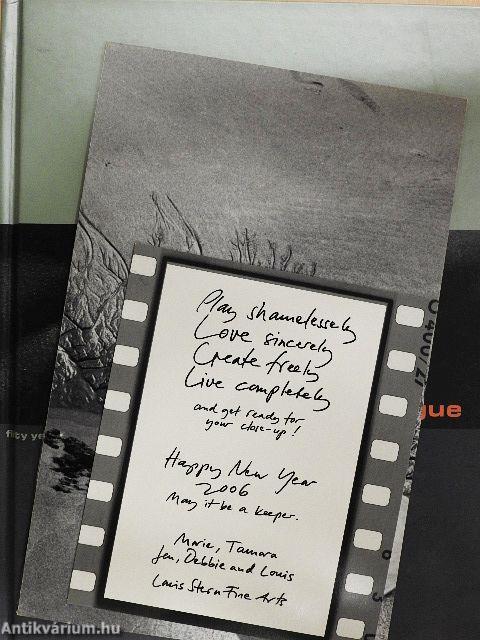 Play shamelessly
Love sincerely
Create freely
Live completely
and get ready for
your close-up!
Happy New Year
2006
May it be a keeper.
Marie, Tamara
Jen, Debbie and Louis
Louis Stern Fine Arts
400/27
gue
fifty ye
Antikvárium.hu